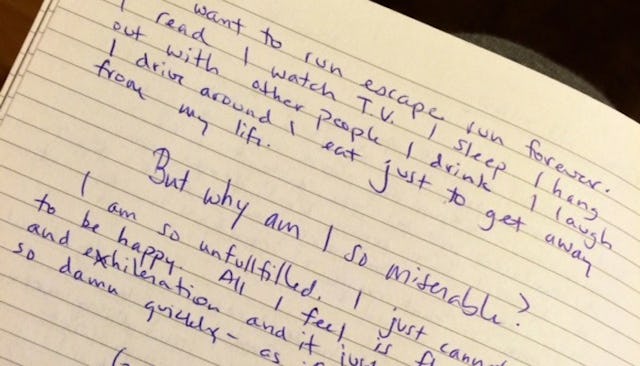 I want to run escape run forever.
I read I watch T.V. I sleep I hang
out with other people I drink I laugh
I drive around I eat just to get away
from my life.
But why am I so miserable?
I am so unfullfilled. I just
to be happy. All I feel is
and exhileration and it just
so damn quickly - as